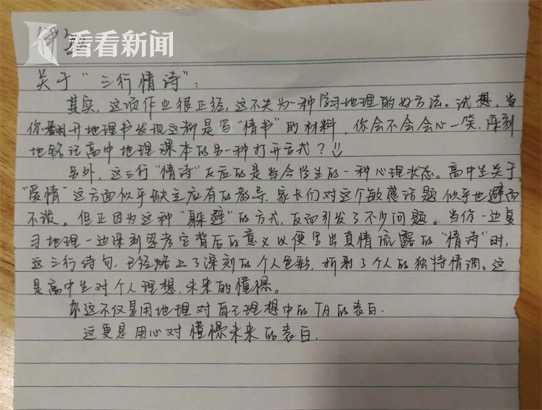 看看新闻
关于“三行情诗”：
其实，这项作业很正经，这不失为一种学习地理的好方法。试想，当
你翻开地理书发现这都是写“情书”的材料，你会不会会心一笑，深刻
地铭记高中地理课本的另一种打开方式？！！
另外，这三行“情诗”反应的是当今学生的一种心理状态。高中生关于
“爱情”这方面似乎缺乏应有的教导，家长们对这个敏感话题似乎也避而
不谈。但正因为这种“躲避”的方式，反而引发了不少问题。当你一边复
习地理一边深刻思考它背后的意义以便写出真情流露的“情诗”时，
这三行诗句，已经赌上了深刻的个人色彩，折射了个人的独特情调。这
是高中生对个人理想、未来的憧憬。
这不仅是用地理对自己理想中的TA的表白.
这更是用心对憧憬未来的表白.